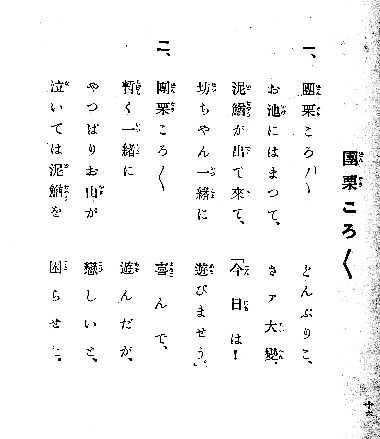 團栗ころ〱
一、團栗ころ〱 どんぶりこ、
お池にはまつて、 さァ大變、
泥鰌が出て來て、 「今日は！
坊ちやん一緒に 遊びませう。」
二、團栗ころ〱 喜んで、
暫く一緒に 遊んだが、
やつぱりお山が 戀しいと、
泣いては泥鰌を 困らせた。